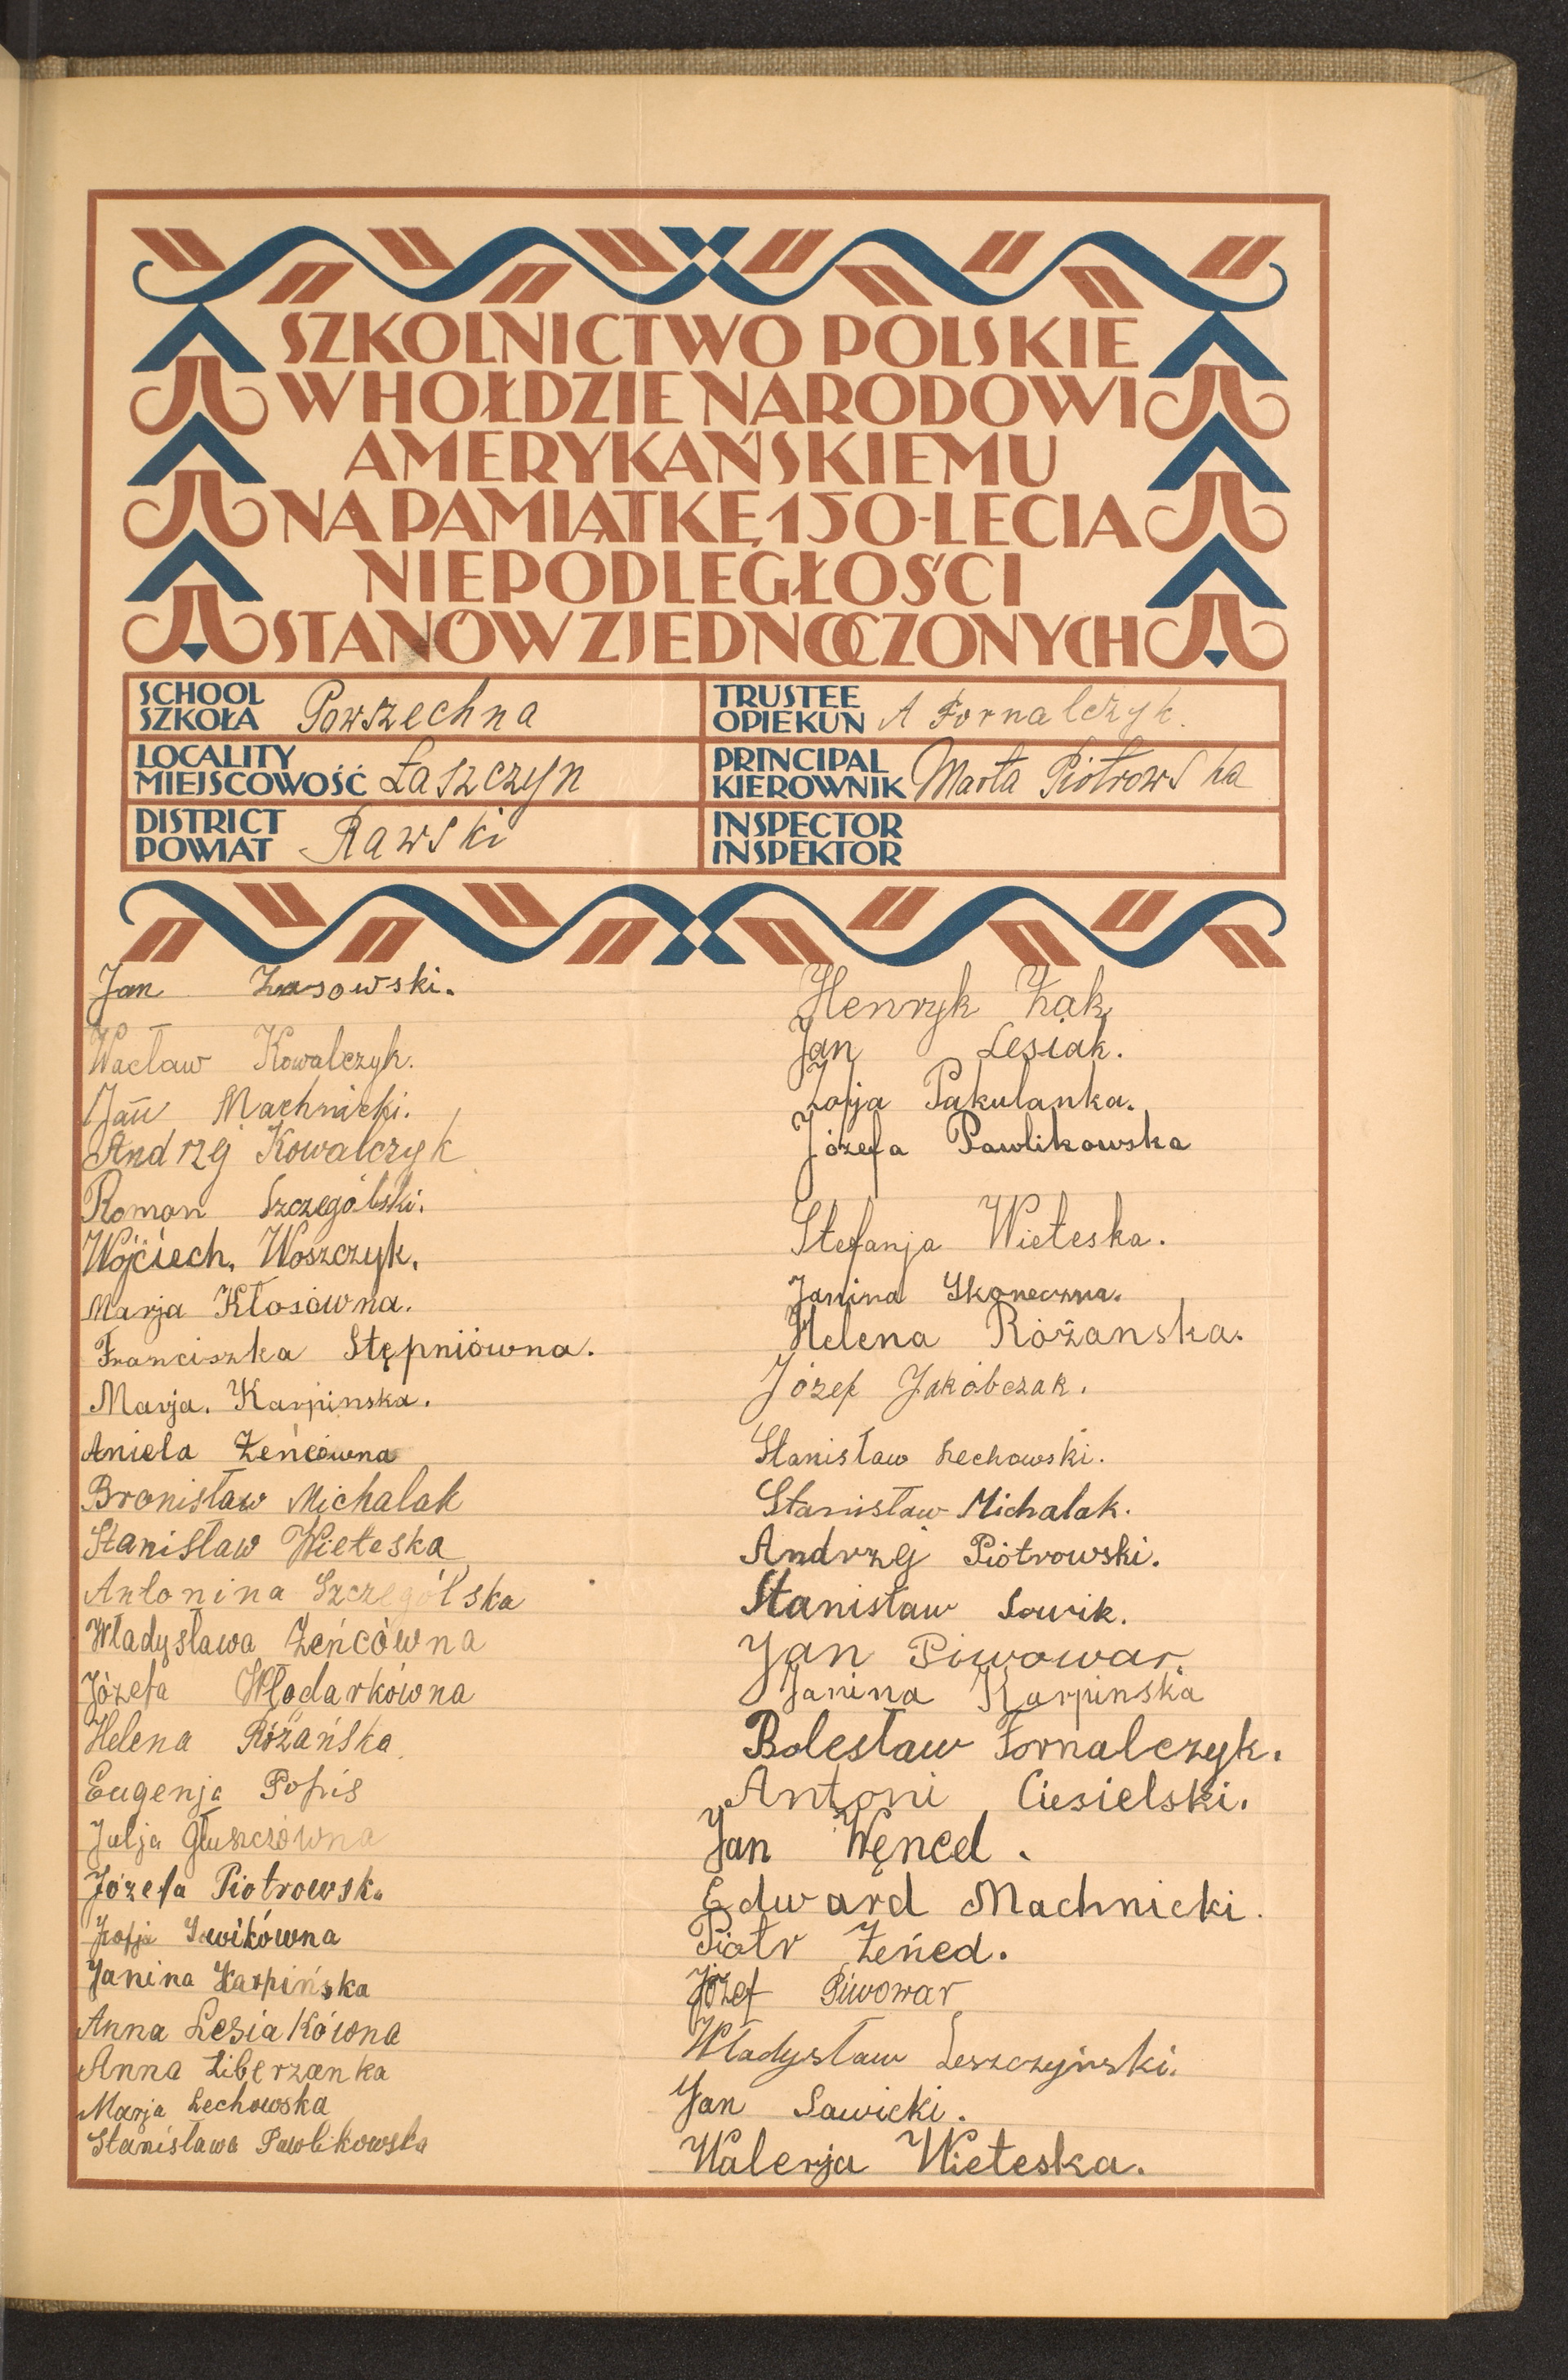 SZKOLNICTWO POLSKIE
W HOŁDZIE NARODOWI
AMERYKAŃSKIEMU
NA PAMIĄTKĘ 150-LECIA
NIEPODLEGŁOŚCI
STANÓW ZJEDNOCZONYCH
SCHOOL
SZKOŁA Powszechna
TRUSTEE
OPIEKUN A Fornalczyk.
LOCALITY
MIEJSCOWOŚĆ Łaszczyn
PRINCIPAL
KIEROWNIK Marta Piotrowska
DISTRICT
POWIAT Rawski
INSPECTOR
INSPEKTOR
Jan Łasowski.
Wacław Kowalczyk.
Jan Machnicki.
Andrzej Kowalczyk
Roman Szczególski.
Wojciech. Woszczyk.
Marja Kłosówna.
Franciszka Stępniówna.
Marja. Karpinska.
Aniela Żeńcówna
Bronisław Michalak
Stanisław Wieteska
Antonina Szczególska
Władysława Żeńcówna
Józefa Włodarkówna
Helena Różańska
Eugenja Popis
Julja Głuszczówna
Józefa Piotrowska
Zofja Sowikówna
Janina Karpińska
Anna Lesiakówna
Anna Liberzanka
Marja Lechowska
Stanisława Pawlikowska
Henryk Żak
Jan Lesiak.
Zofja Pakulanka.
Józefa Pawlikowska
Stefanja Wieteska.
Janina Skoneczna.
Helena Różanska.
Józef Jakóbczak.
Stanisław Lechowski.
Stanisław Michalak.
Andrzej Piotrowski.
Stanisław Sowik.
Jan Piwowar.
Janina Karpinska
Bolesław Fornalczyk.
Antoni Ciesielski.
Jan Węncel.
Edward Machnicki.
Piotr Żeńced.
Józef Piwowar
Władysław Leszczyński.
Jan Sawicki.
Walerja Wieteska.